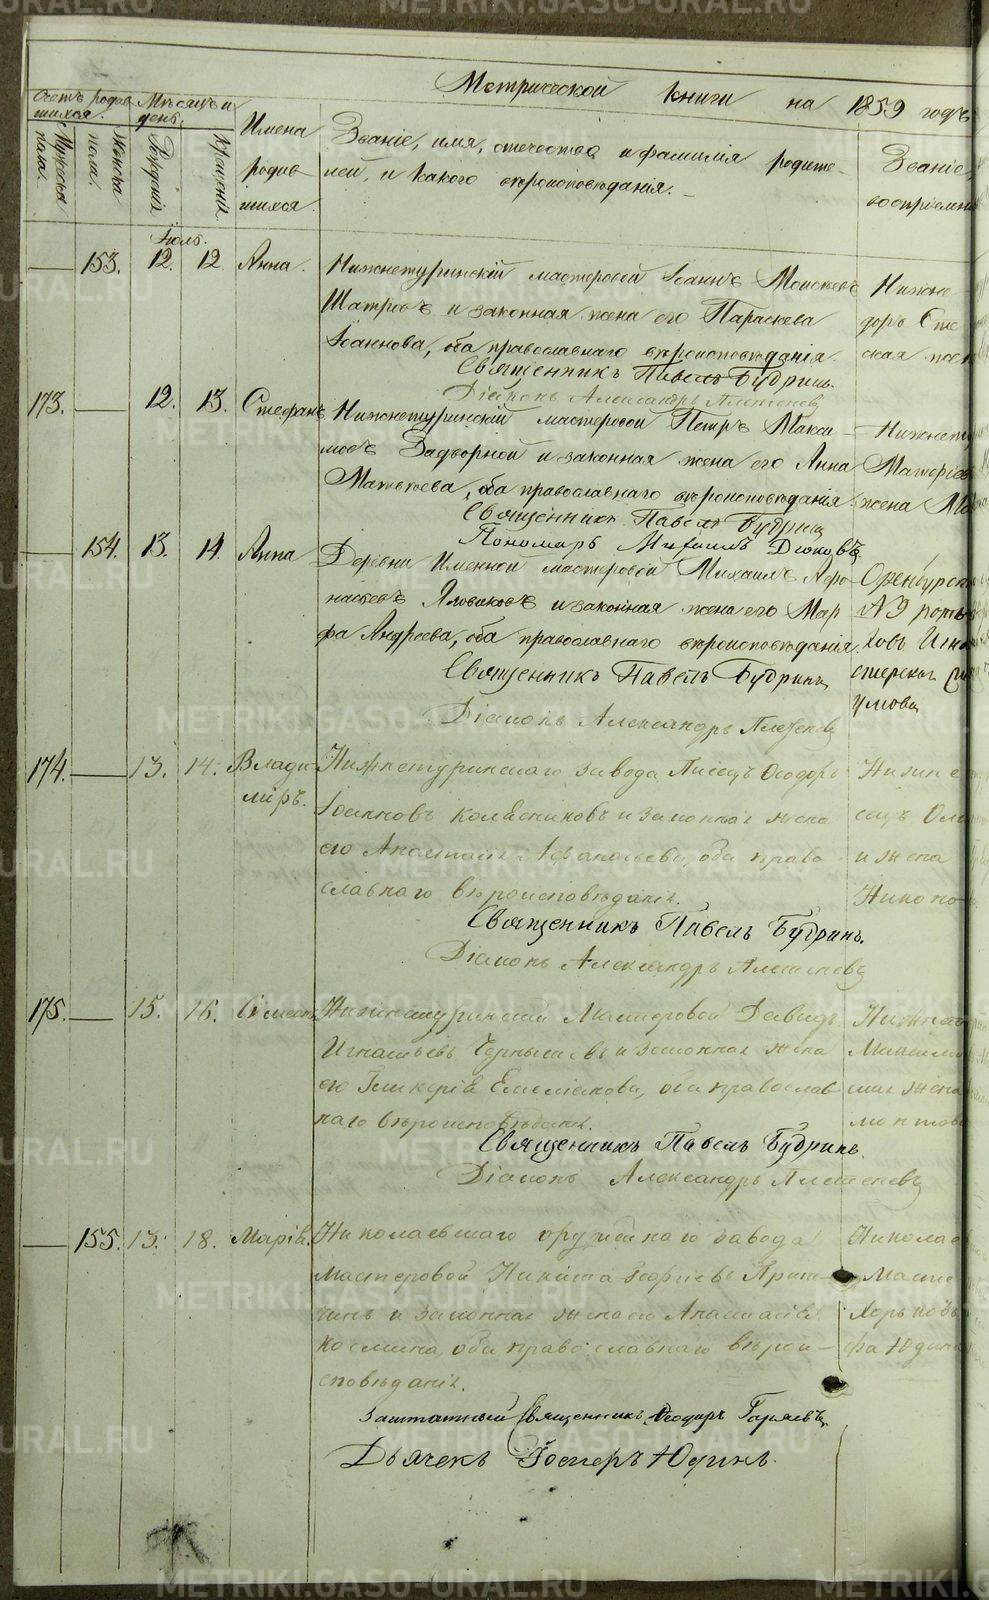 Метрической книги на 1859 годъ
Счетъ родив
шихся.
Мѣсяцъ и
день.
Мужеска
пола.
Женска
пола.
Рожденія
Крещенія
Имена
родив
шихся.
Званіе, имя, отечество, и фамилія родите-
лей, и какого вѣроисповѣданія.
Званіе,
воспріемни
Іюль.
153. 12. 12 Анна.
Нижнетуринскій мастеровой Іоаннъ Моисеевъ
Шатровъ и законная жена его Параскева
Іоаннова, оба православнаго вѣроисповѣданія.
Священникъ Павелъ Будринъ.
Діаконъ Александръ
Нижне
доръ Сте
ская жен
173. 12. 13. Стефанъ
Нижнетуринскій мастеровой Петръ Макси-
мовъ Задворной и законная жена его Анна
Матвѣева, оба православнаго вѣроисповѣданія
Священникъ Павелъ Будринъ
Пономарь Михаилъ
Нижнету
жена Ма
154. 13. 14. Анна
Деревни Именной мастеровой Михаилъ Афо
насьевъ и законная жена его Мар
фа Андреева, оба православнаго вѣроисповѣданія.
Священникъ Павелъ Будринъ
Діаконъ Александръ
Оренбургск
ховъ Игна
умова
174. 13. 14. Влади-
міръ.
Нижнетуринскаго завода Писецъ Ѳеодоръ
Іоанновъ Колѣсниковъ и законная жена
его Анастасія Афанасьева, оба право-
славнаго вѣроисповѣданія.
Священникъ Павелъ Будринъ.
Діаконъ Александръ
Нижне
и жена
Никоно
175. 15. 16.
Нижнетуринскій Мастеровой Давидъ
Игнатьевъ Чернышевъ и законная жена
его Гликерія Емеліанова, оба православ
наго вѣроисповѣданія.
Священникъ Павелъ Будринъ.
Діаконъ Александръ
Нижнет
жена
155. 13. 18. Марія.
Николаевскаго оружейнаго завода
Мастеровой Никита Георгіевъ
и законная жена его Анастасія
Космина, оба православнаго вѣрои-
сповѣданія.
Заштатный Священникъ Ѳеодоръ Горяевъ
Дьячекъ Юдинъ.
Николае
Масте
Хорьковъ
фа Юдина
METRIKI.GASO-URAL.RU